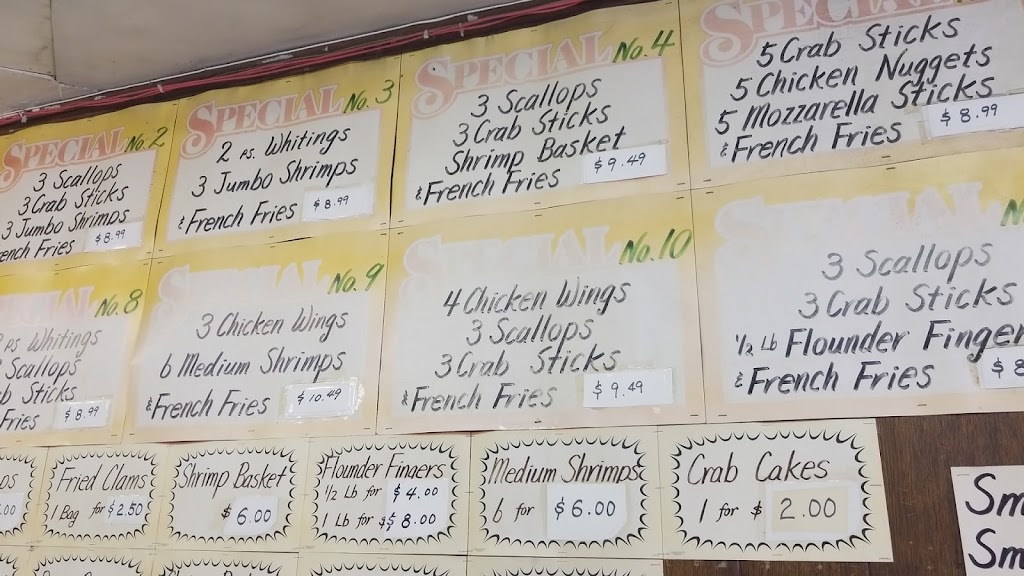 SPECIAL No. 2
3 Scallops
3 Crab Sticks
3 Jumbo Shrimps
French Fries $8.99
SPECIAL No. 3
2 PS. Whitings
3 Jumbo Shrimps
& French Fries $8.99
SPECIAL No. 4
3 Scallops
3 Crab Sticks
Shrimp Basket
& French Fries $9.49
SPECIAL
5 Crab Sticks
5 Chicken Nuggets
5 Mozzarella Sticks
& French Fries $8.99
SPECIAL No. 8
PS Whitings
Scallops
Sticks
Fries $8.99
SPECIAL No. 9
3 Chicken Wings
6 Medium Shrimps
& French Fries $10.49
SPECIAL No. 10
4 Chicken Wings
3 Scallops
3 Crab Sticks
& French Fries $9.49
SPECIAL
3 Scallops
3 Crab Sticks
1/2 Lb Flounder Finger
& French Fries $8
Fried Clams
1 Bag for $2.50
Shrimp Basket
$6.00
Flounder Fingers
1/2 Lb for $4.00
1 Lb for $$8.00
Medium Shrimps
6 for $6.00
Crab Cakes
1 for $2.00
Sm
Sm